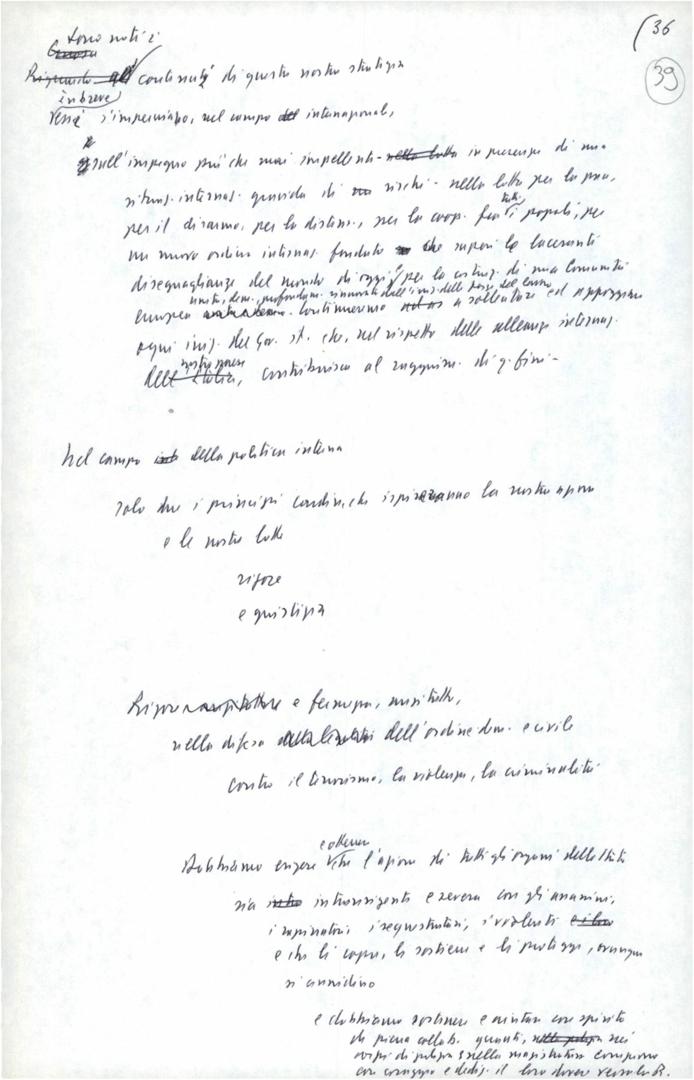 36
39
sono noti i
contenuti di questa nostra strategia
in breve
s'impernia, nel campo internazional,
sull'impegno più che mai impellente - in presenza di una
situaz. internaz. gravida di rischi - nella lotta per la pace,
per il disarmo, per la distens., per la coop. fra tutti i popoli, per
un nuovo ordine internaz. fondato che superi le laceranti
diseguaglianze del mondo di oggi, per la costruz. di una Comunità
unita, dem., profondam. rinnovata dall'iniz. delle forze del lavoro
europea. Continueremo a sollecitare ed appoggiare
ogni iniz. del Gov. it. che, nel rispetto delle alleanze internaz.
nostro paese
dell, contribuisca al raggiung. di q. fini -
Nel campo della politica interna
solo due i principi cardine, che ispireranno la nostra azione
e le nostre lotte
rigore
e giustizia
Rigore e fermezza, anzitutto,
nella difesa dell'ordine dem. e civile
contro il terrorismo, la violenza, la criminalità
e ottenere
Dobbiamo esigere che l'azione di tutti gli organi dello Stato
sia intransigente e severa con gli assassini,
i rapinatori, i sequestratori, i violenti
e chi li copre, li sostiene e li protegge, ovunque
si annidino
e dobbiamo sostenere e aiutare con spirito
di piena collab. quanti, nei
corpi di polizia e nella magistratura compiono
con coraggio e dediz. il loro dovere verso la R.